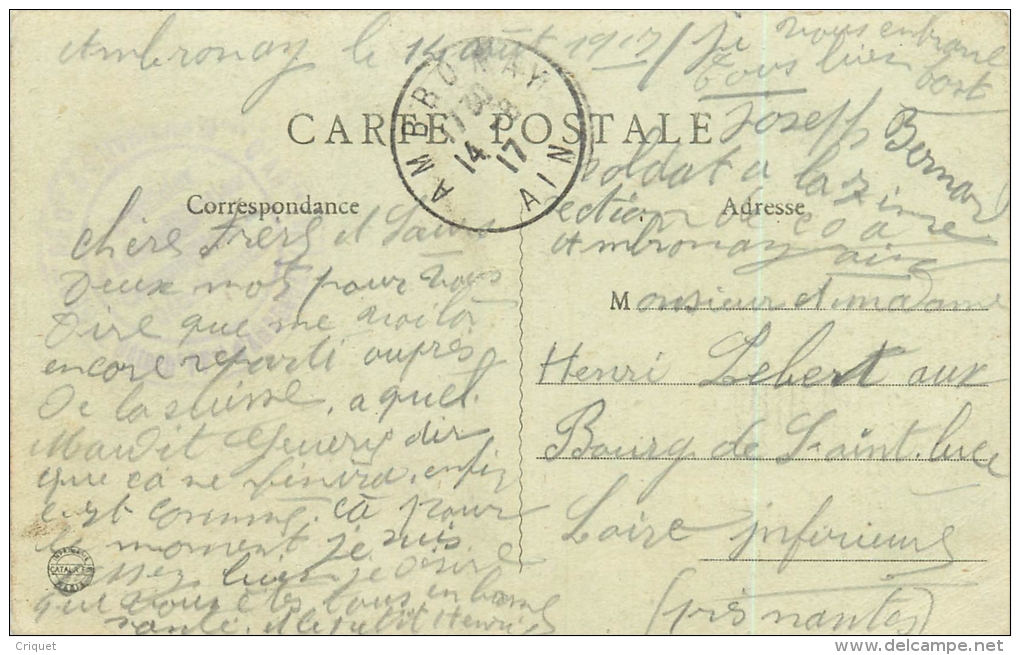 Ambronay le 14 août 1917 / Je vous embrasse
tous bien
fort
Joseph Bernard
soldat à la 7 ième
section de C O A
Ambronay Ain
AMBRONAY
17 30
14 - 8
17
AIN
CARTE POSTALE
Correspondance
Adresse
chers Frère et
Deux mots pour vous
Dire que me voilà
encore reparti auprès
De la suisse, a quel
Maudit Guerre dir
que ca ne finira enfin
c'est comme ca pour
le moment je suis
assez bien je désire
que vous êtes tous en bonne
santé. et le petit Henri
Monsieur et madame
Henri Lebert aux
Bourg de Saint. luce
Loire inferieure
(près nantes)
CATALA F
PARIS
Criquet
www.delcampe.net